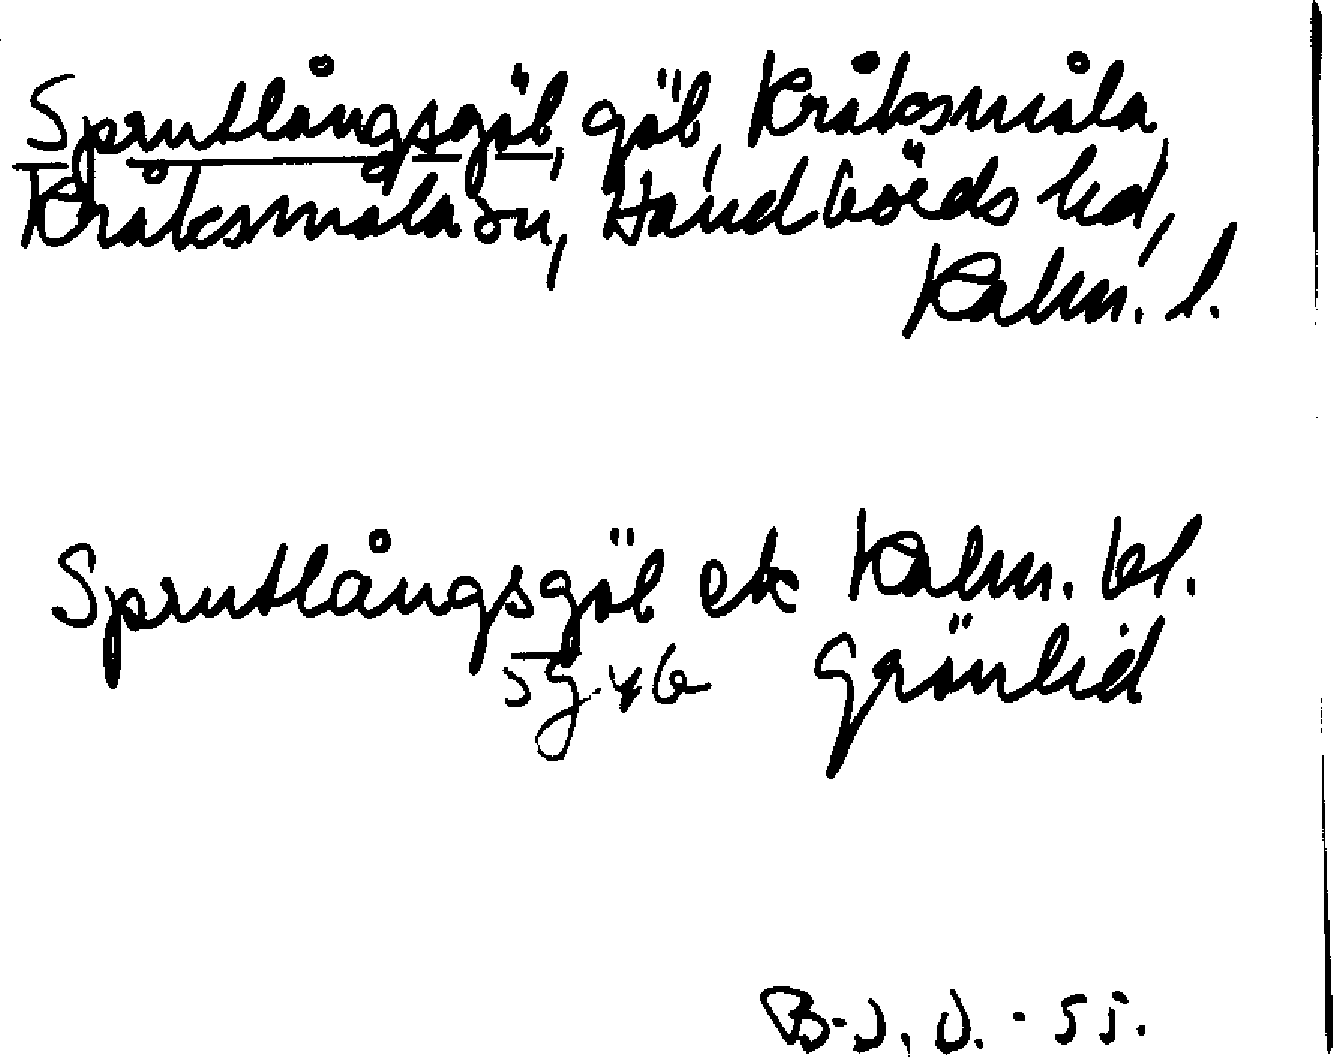 Sprutlångsgöl, göl, Kråksmåla
Kråksmåla sn, Handbörds hd,
Kalm. l.
Sprutlångsgöl ek Kalm. bl.
Grönlid
B-J. O. - 55.